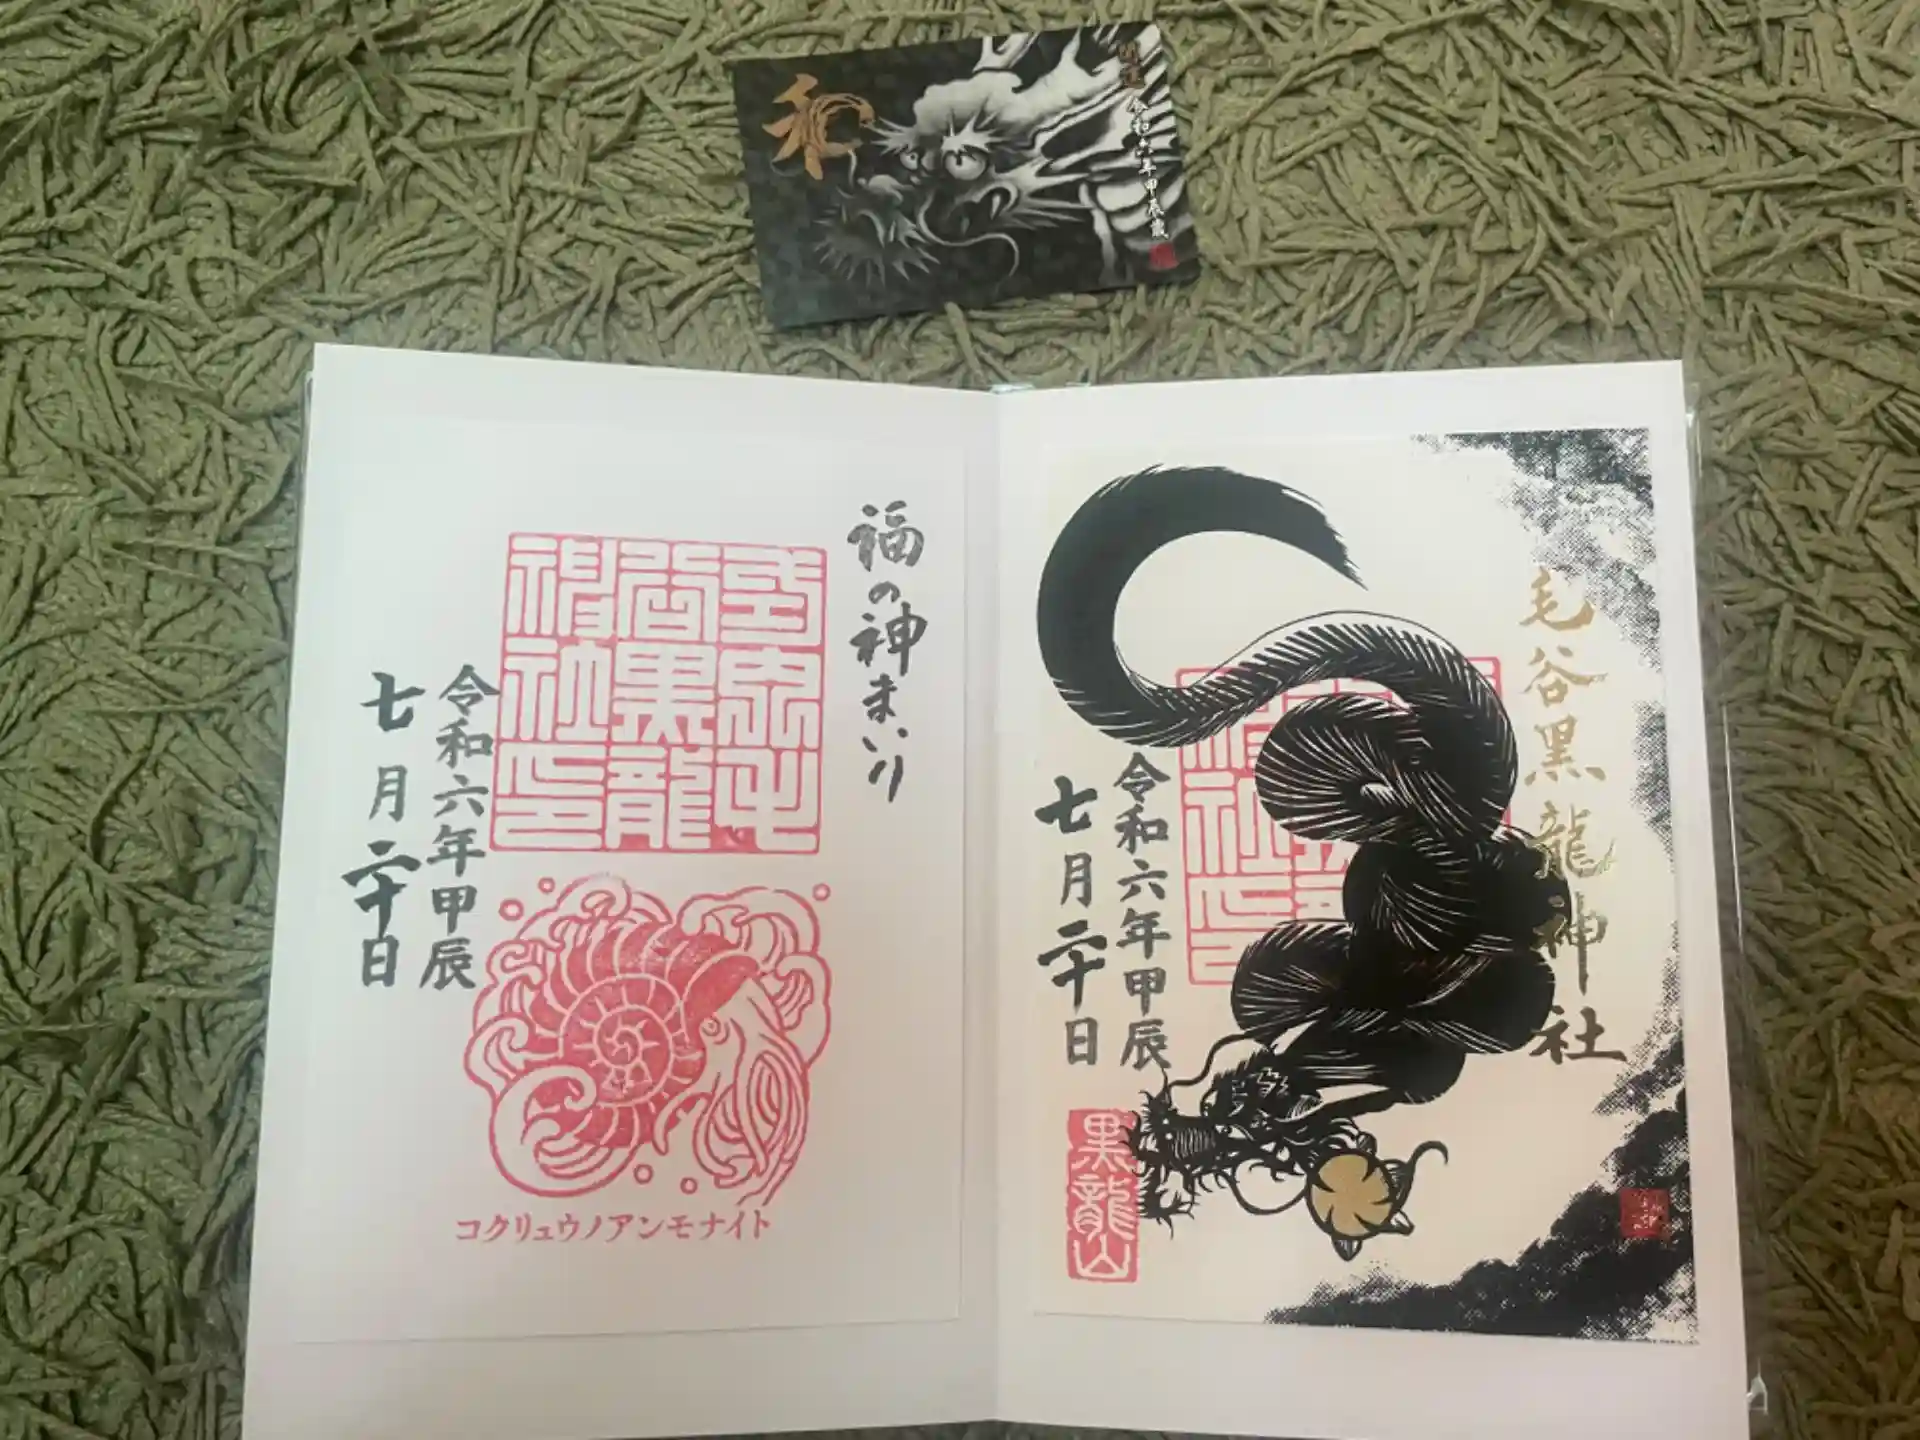 和
開運
令和六年甲辰歳
福の神まいり
令和六年甲辰
七月二十日
コクリュウノアンモナイト
毛谷黒龍神社
令和六年甲辰
七月二十日
黒龍山